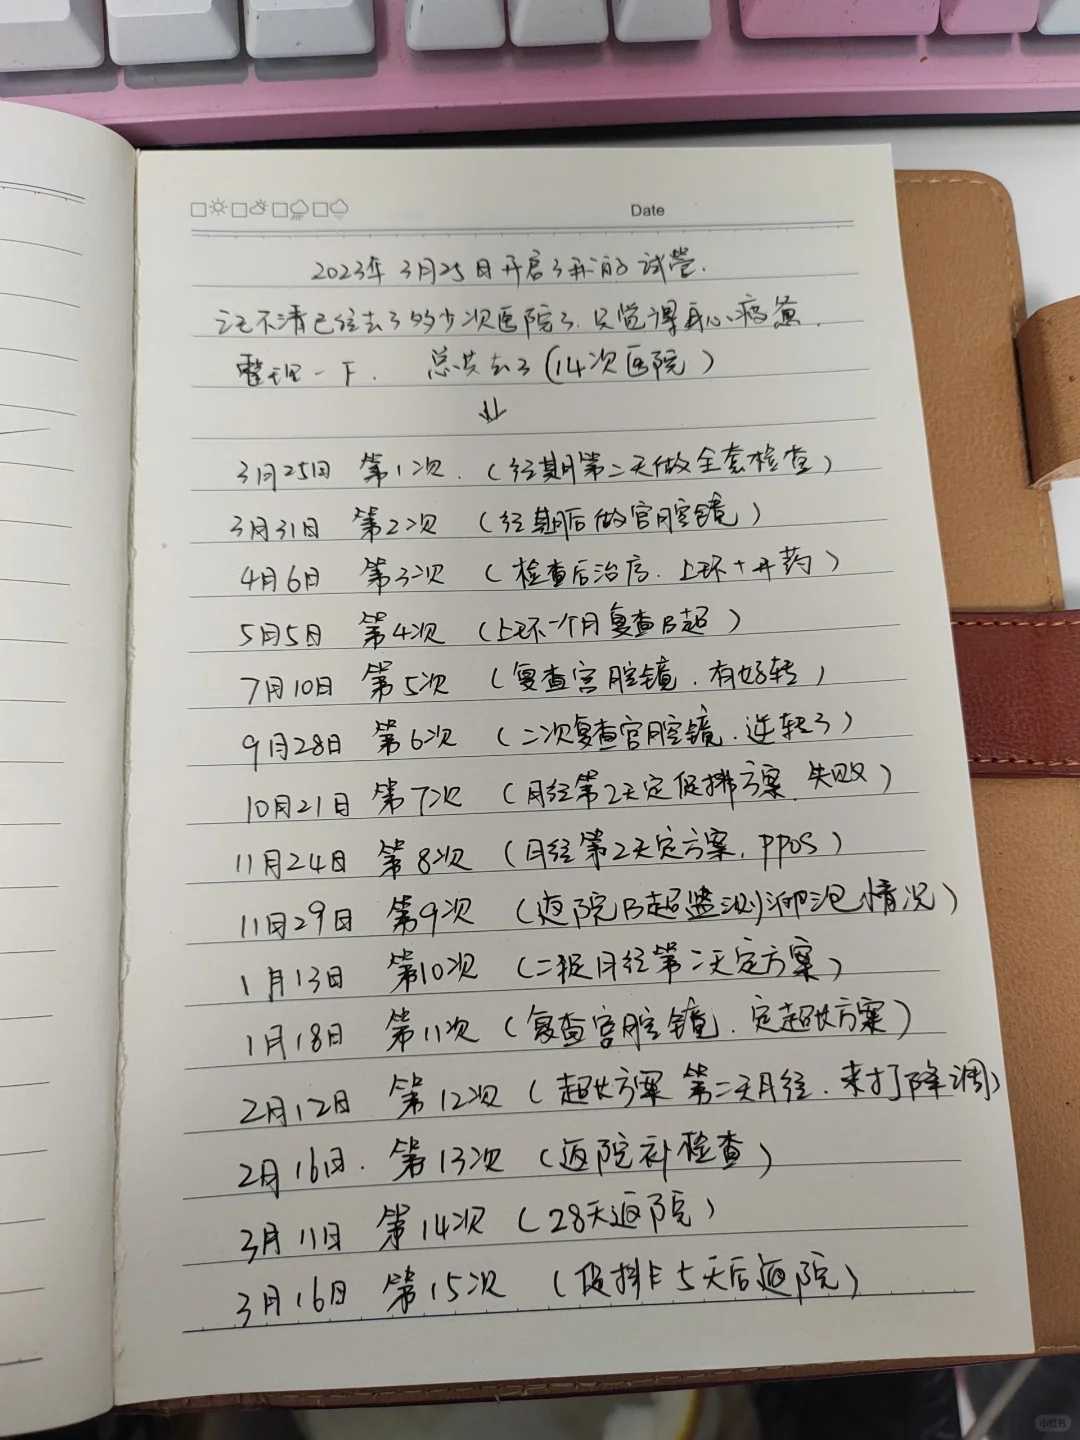 Date
2023年3月25日开启了我的试管.
记不清已经去了多少次医院了.只觉得身心疲惫.
整理一下. 总共去了(14次医院)
3月25日 第1次.(经期第二天做全套检查)
3月31日 第2次 (经期后做宫腔镜)
4月6日 第3次 (检查后治疗.上环+开药)
5月5日 第4次 (上环一个月复查B超)
7月10日 第5次 (复查宫腔镜.有好转)
9月28日 第6次 (二次复查宫腔镜.逆转了)
10月21日 第7次 (月经第2天定促排方案.失败)
11月24日 第8次 (月经第2天定方案.PPOS)
11月29日 第9次 (返院B超监测卵泡情况)
1月13日 第10次 (二促月经第二天定方案)
1月18日 第11次 (复查宫腔镜.定超长方案)
2月12日 第12次 (超长方案 第二天月经.来打降调)
2月16日. 第13次 (返院补检查)
3月11日 第14次 (28天返院)
3月16日 第15次 (促排5天后返院)
小红书